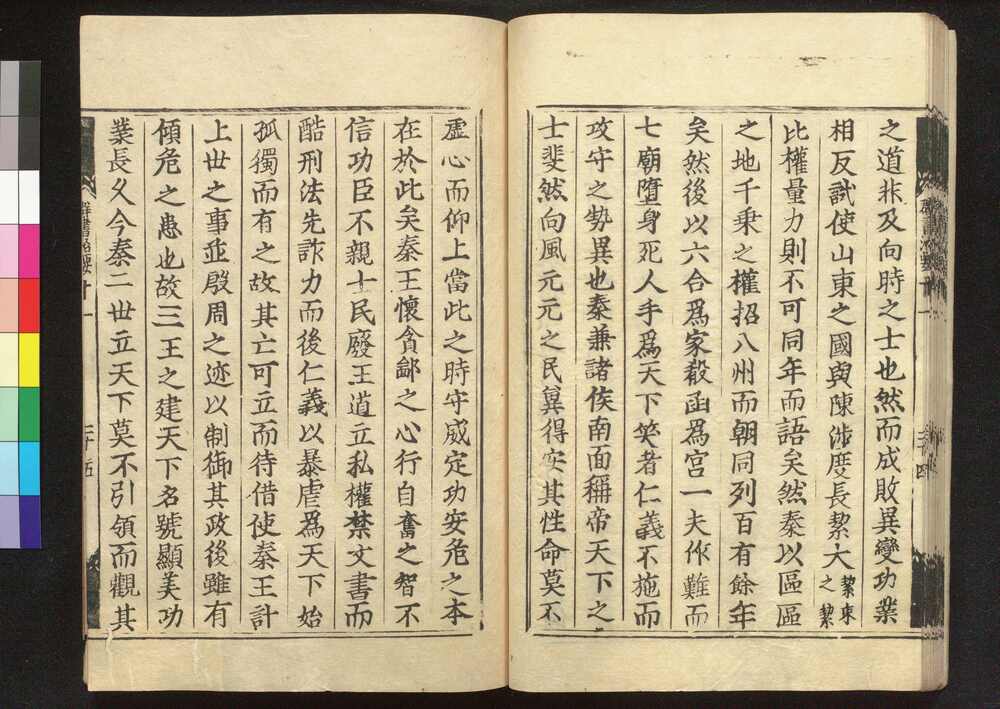 之道非及向時之士也然而成敗異變功業
相反試使山東之國與陳涉度長絜大絜束之絜
比權量力則不可同年而語矣然秦以區區
之地千乘之權招八州而朝同列百有餘年
矣然後以六合爲家殽函爲宮一夫作難而
七廟墮身死人手爲天下笑者仁義不施而
攻守之勢異也秦兼諸侯南面稱帝天下之
士斐然向風元元之民冀得安其性命莫不
虛心而仰上當此之時守威定功安危之本
在於此矣秦王懷貪鄙之心行自奮之智不
信功臣不親士民廢王道立私權禁文書而
酷刑法先詐力而後仁義以暴虐爲天下始
孤獨而有之故其亡可立而待借使秦王計
上世之事並殷周之迹以制御其政後雖有
傾危之患也故三王之建天下名號顯美功
業長久今秦二世立天下莫不引領而觀其
群書治要十一
二十五